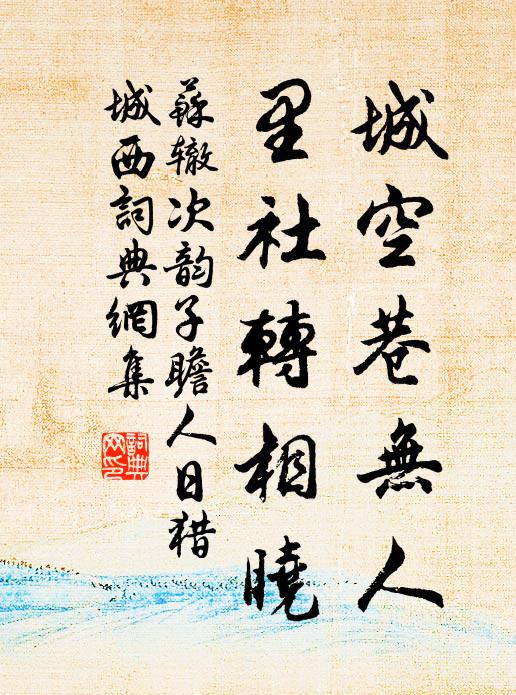 城空巷無人
里社轉相曉
蘇辙次韵子瞻人日猎
城西詞典網集
詞典
网印